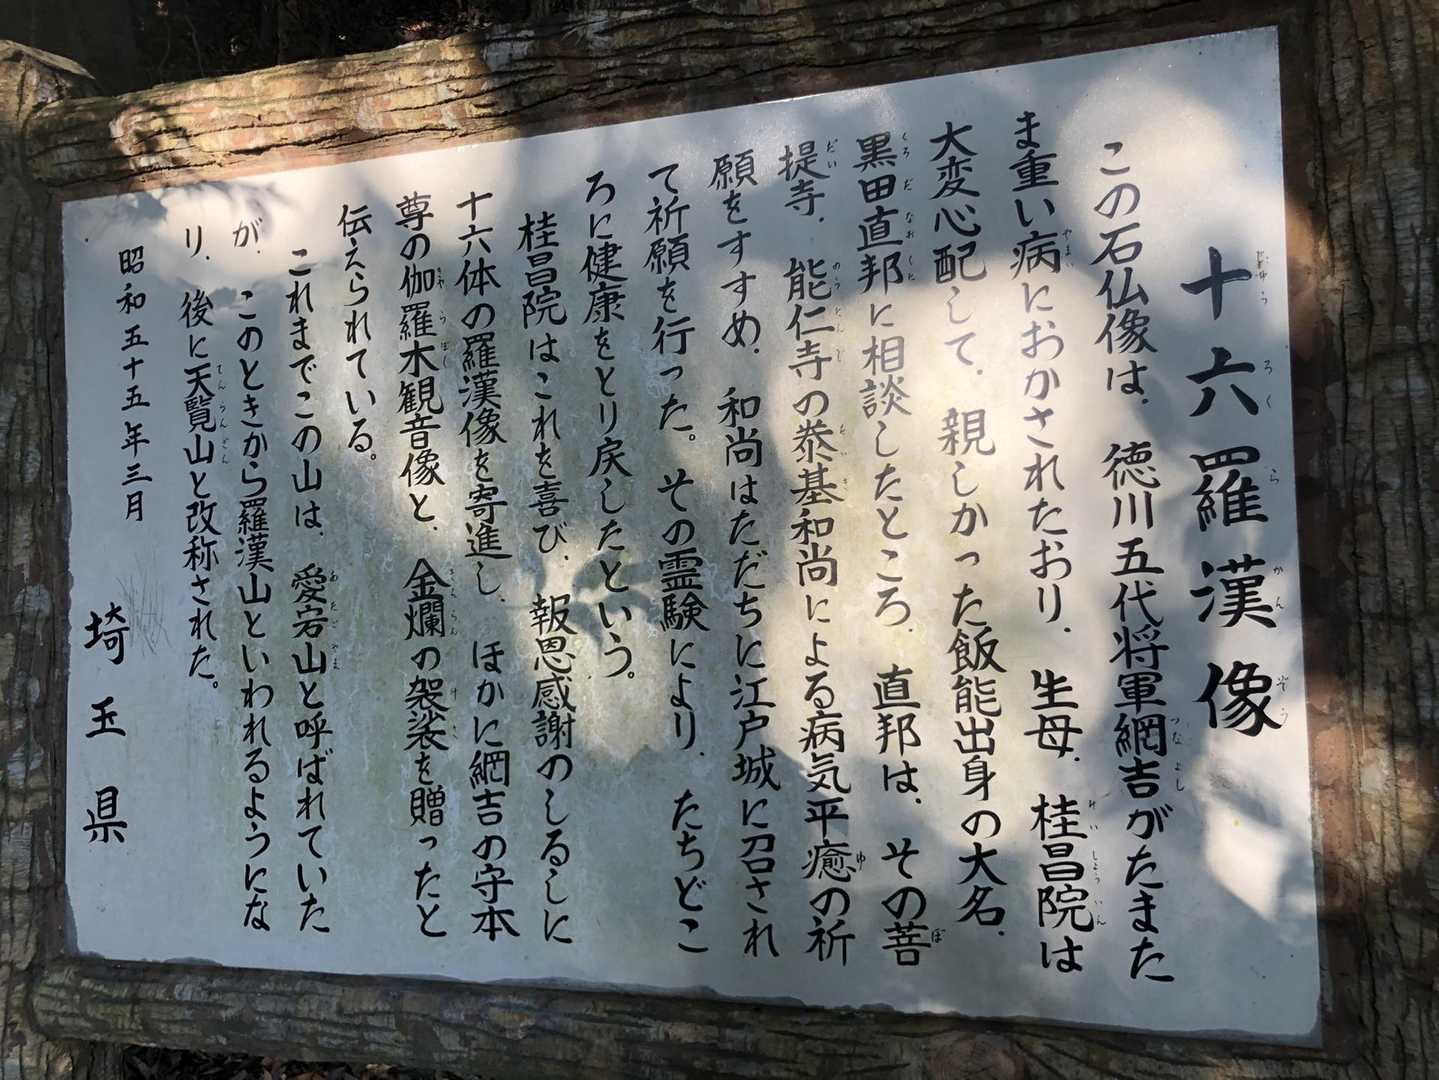 十六羅漢像
この石仏像は、徳川五代将軍綱吉がたまた
ま重い病におかされたおり、生母、桂昌院は
大変心配して、親しかった飯能出身の大名、
黒田直邦に相談したところ、直邦は、その菩
提寺、能仁寺の泰基和尚による病気平癒の祈
願をすすめ、和尚はただちに江戸城に召され
て祈願を行った。その霊験により、たちどこ
ろに健康をとり戻したという。
桂昌院はこれを喜び、報恩感謝のしるしに
十六体の羅漢像を寄進し、ほかに綱吉の守本
尊の伽羅木観音像と、金爛の袈裟を贈ったと
伝えられている。
これまでこの山は、愛宕山と呼ばれていた
が、このときから羅漢山といわれるようにな
り、後に天覧山と改称された。
昭和五十五年三月
埼玉県